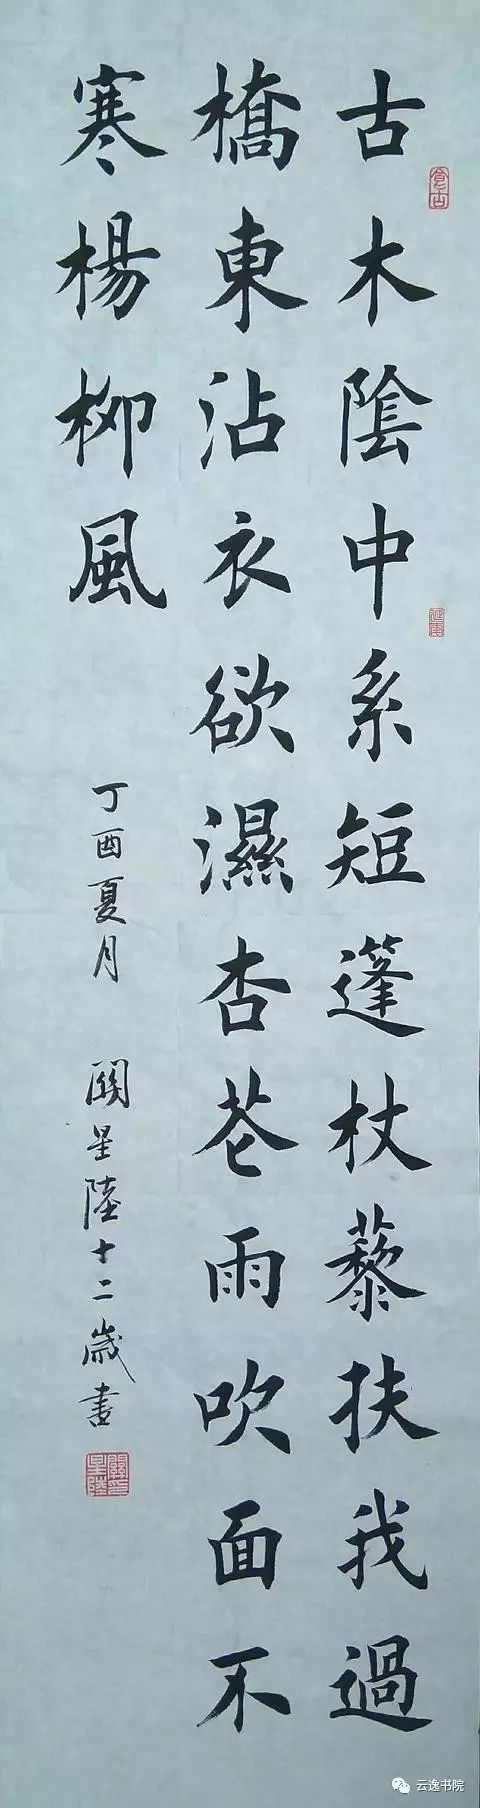 古木陰中系短篷杖藜扶我過
橋東沾衣欲濕杏花雨吹面不
寒楊柳風
丁酉夏月 關星陸十二歲書
云逸书院